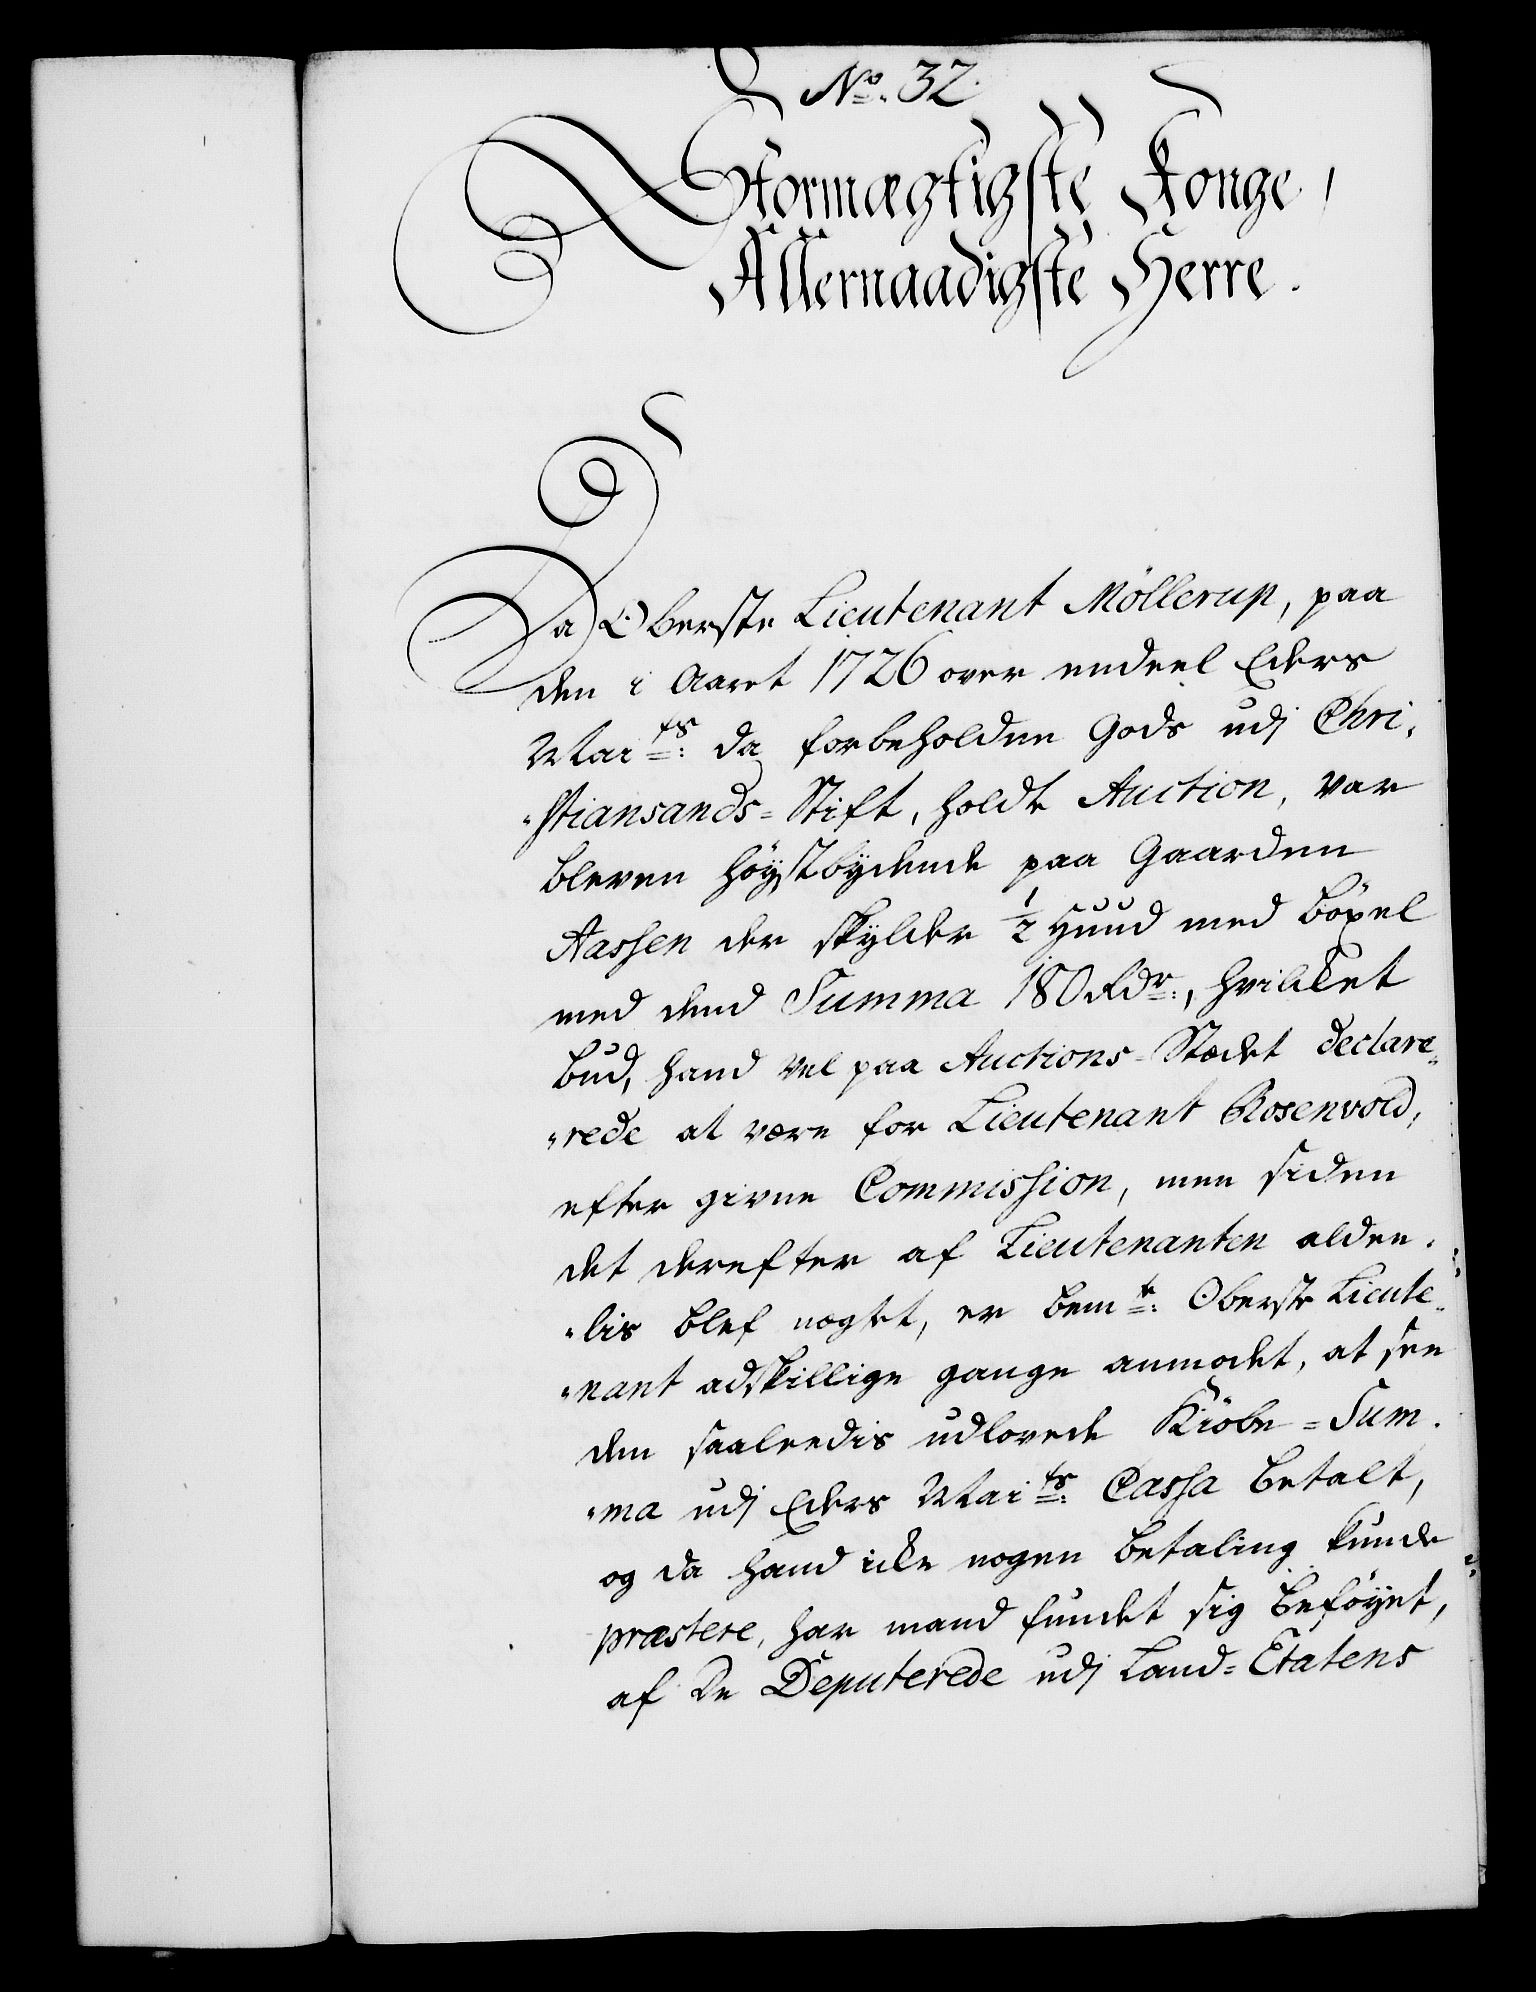 No. 32.
Stormægtigste Konge,
Allernaadigste Herre.
Da Oberste Lieutenant Möllerup, paa
den i Aaret 1726 over endeel Eders
Maits: da forbeholdne Gods udj Chri-
stiansands-Stift, holdte Auction, var
bleven høystbydende paa Gaarden
Aassen der skylder 1/2 Huud med böxel
med dend Summa 180 Rdr:, hvilket
bud, hand vel paa Auctions-Stædet declare-
rede at være for Lieutenant Rosenvold,
efter givne Commission, men siden
det derefter af Lieutenanten alden-
lis blef nægtet, er bemte: Oberste Lieute-
nant adskillige gange anmodet, at see
den saaleedis udlovede Kiøbe-Sum-
ma udj Eders Maits: Cassa betalt,
og da hand icke nogen betaling kunde
præstere, har mand fundet sig beføyet,
af De Deputerede udj Land-Etatens